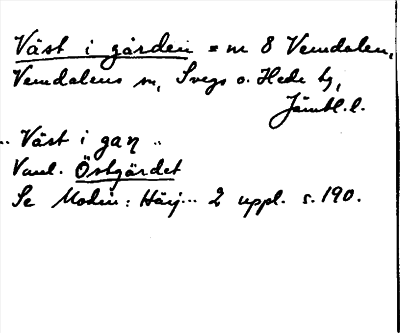 Väst i gården = nr 8 Vemdalen,
Vemdalens sn, Svegs o. Hede tg,
Jämtl. l.
.. Väst i gaṛn ..
Vanl. Östgärdet
Se Modin: Härj... 2 uppl. s. 190.